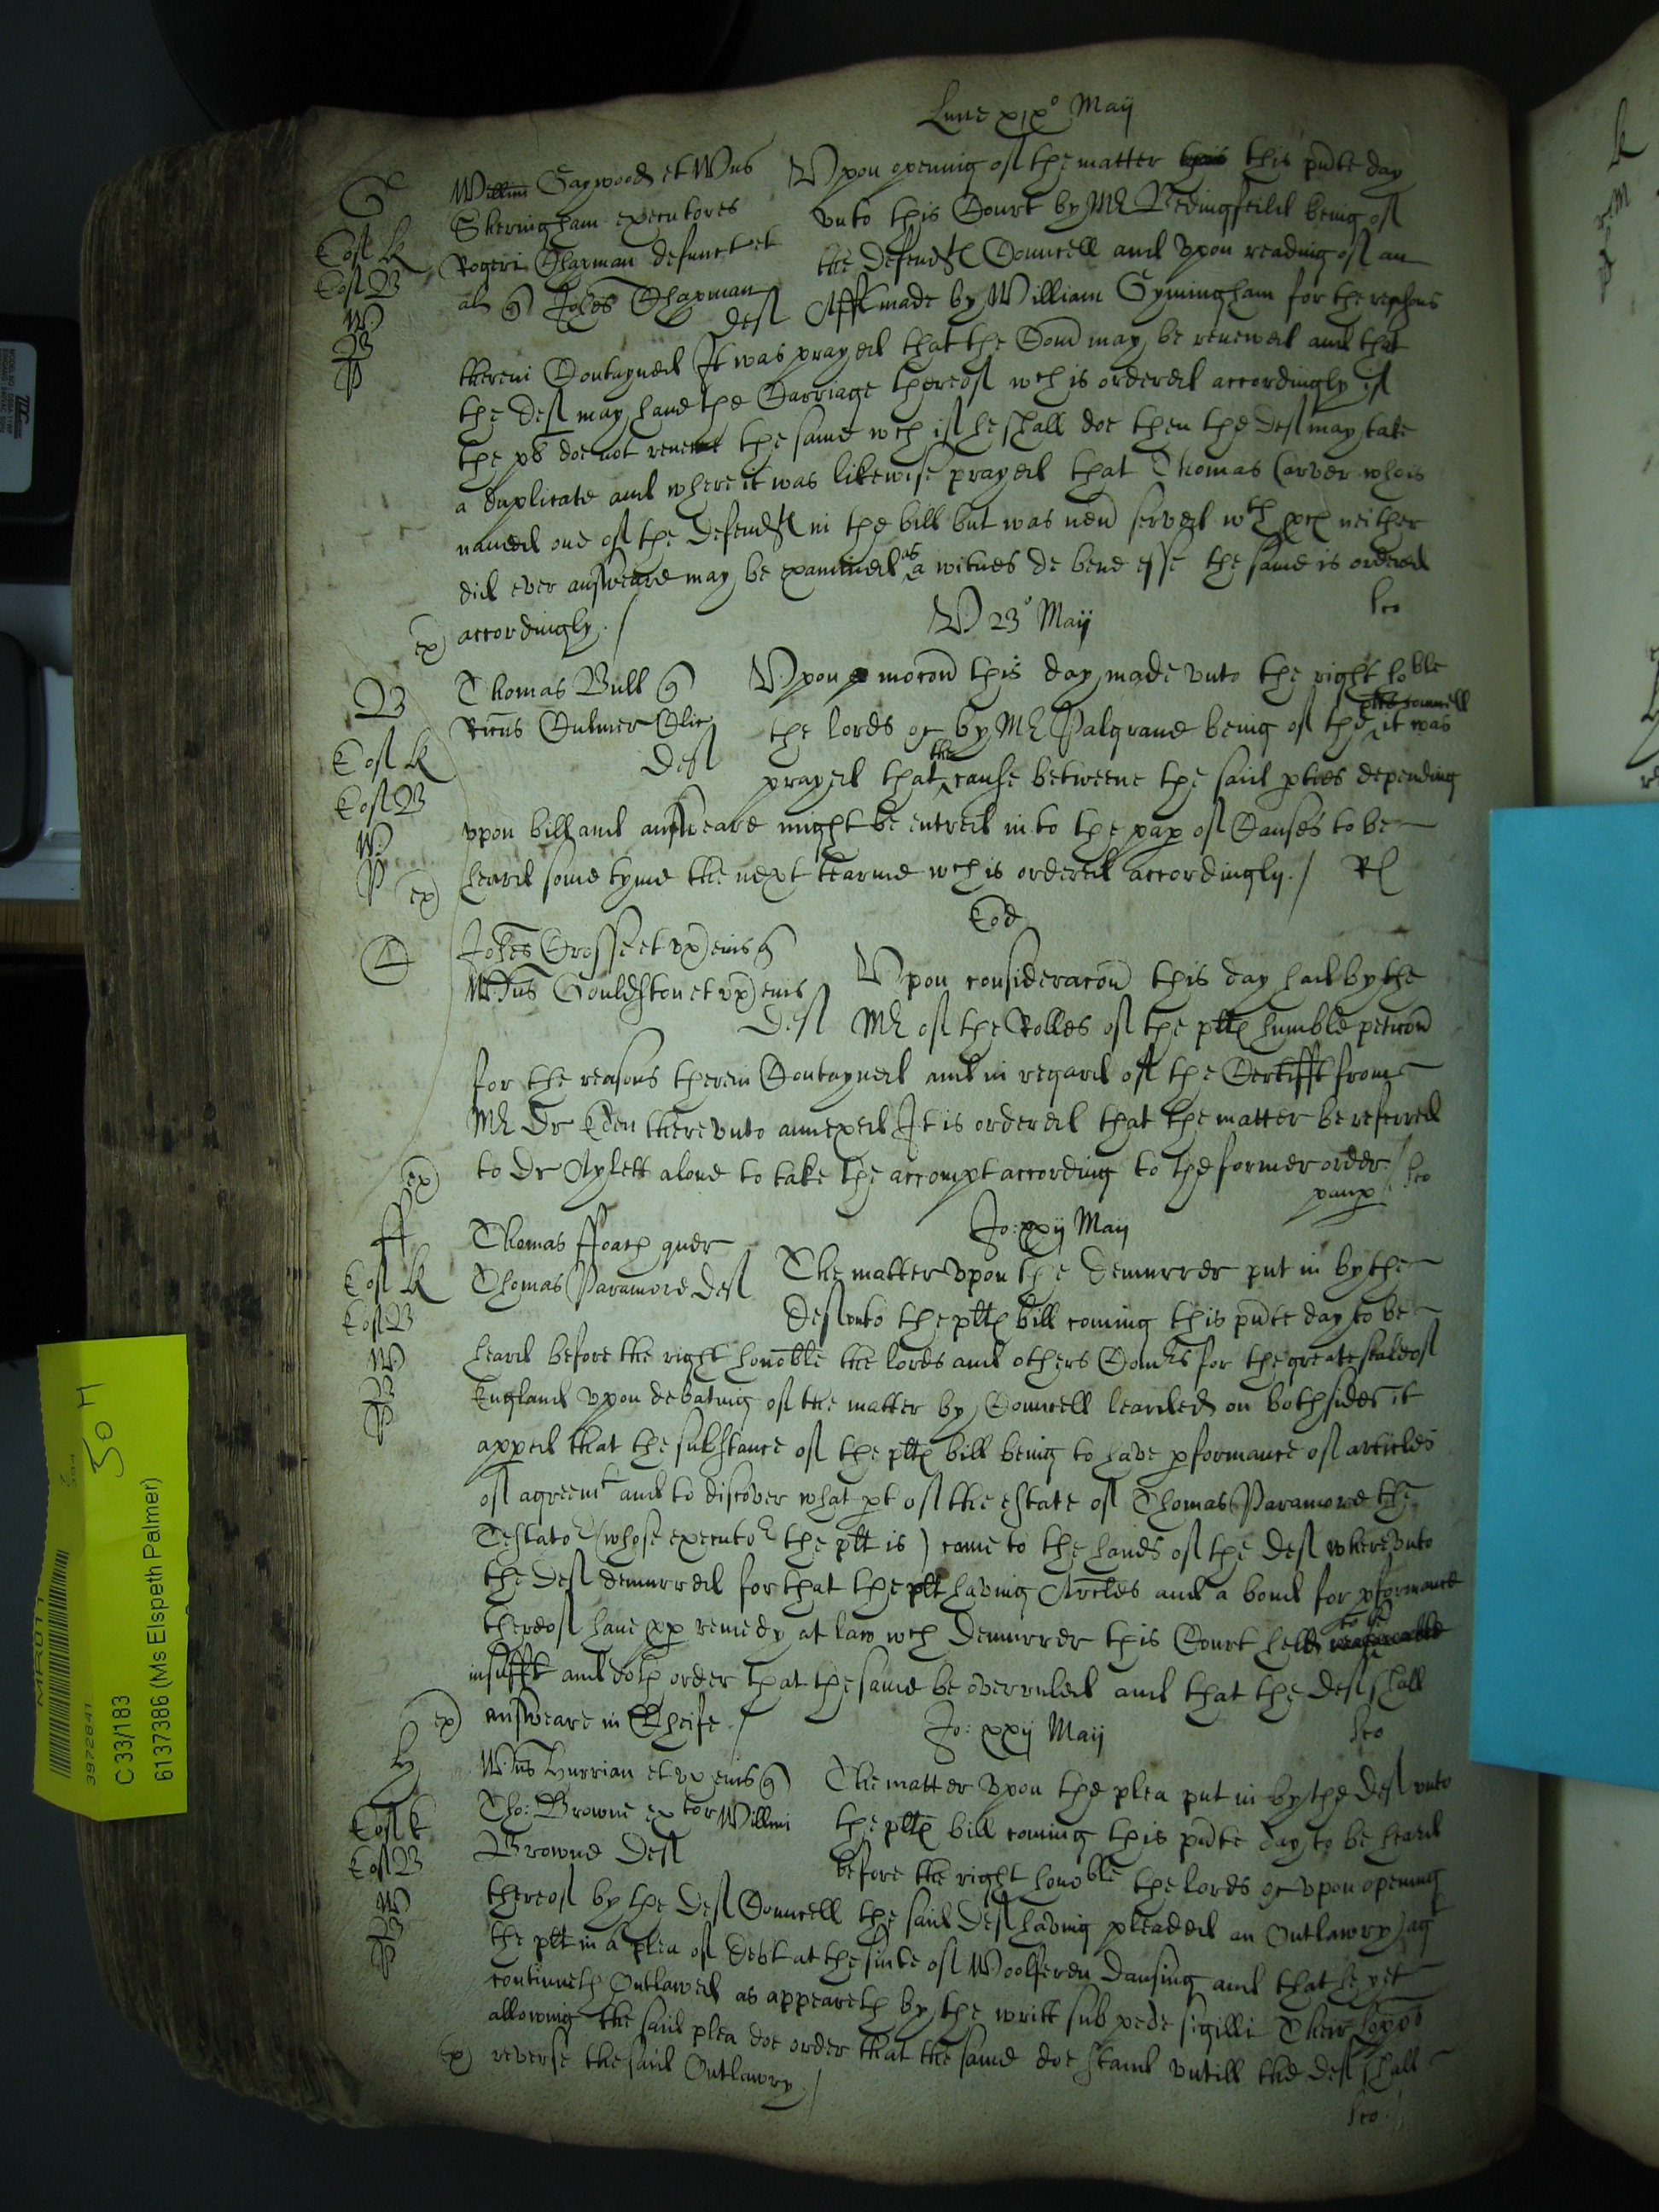 Lune xixº Maij
G
Willm Gaywood et Wms
Skeringham executores
Rogeri Chapman defunct et
al q Johes Chapman
def
Upon opening of the matter this pnte day
unto this Court by Mr Bedingfeild being of
the defendts Councell and upon reading of an
Afft made by William Gymingham for the reasons
therein Contayned It was prayed that the Com may be renewed and that
the def may have the Carriage thereof wch is ordered accordingly if
the pl doe not renewe the same wch if he shall doe then the def may take
a duplicate and where it was likewise prayed that Thomas Carver whois
named one of the defendts in the bill but was nev served wth pces neither
did ever answeare may be examined as a witnes de bene esse the same is ordered
accordingly /
W 23º Maij
B
Thomas Bull q
Ricus Culmer Clic
Def
Upon mocon this day made unto the right hoble
the lords &c by Mr Palgrave being of the plts councell it was
prayed that the cause betweene the said pties depending
upon bill and answeare might be entred into the pap of Causes to be
heard some tyme the next tearme wch is ordered accordingly /
Eod
Johes Crosse et ux eius q
Wms Gouldston et ux eius
Def
Upon consideracon this day had by the
Mr of the Rolles of the plts humble peticon
for the reasons therein Contayned and in regard of the Certifft from
Mr Dr Eden thereunto annexed It is ordered that the matter be referred
to Dr Aylett alone to take the accompt according to the former order /
paup
Jo: xxij Maij
ff
Thomas ffoach quer
Thomas Paramore Def
The matter upon the demurrer put in by the
Def unto the plts bill coming this pnte day to be
heard before the right honoble the lords and others Comrs for the greate seale of
England upon debating of the matter by Councell learned on both sides it
appred that the substance of the plts bill being to have pformance of articles
of agreemt and to discover what pt of the estate of Thomas Paramore the
Testator (whose executor the plt is) came to the hands of the Def whereunto
the Def demurred for that the plt having Arcles and a bond for pformance
thereof have pp remedy at law wch Demurrer this Court held to be
insufft and doth order that the same be overruled and that the Def shall
answeare in Cheife /
Jo: xxij Maij
H
Wms Hurrian et ux eius q
Tho: Browne extor Willmi
Browne Def
The matter upon the plea put in by the Def unto
the plts bill coming this pnte day to be heard
before the right honoble the lords &c upon opening
thereof by the Def Councell the said Def having pleaded an Outlawry agt
the plt in a plea of debt at the suite of Woolferen Dansing and that he yet
continueth Outlawed as appeareth by the writt sub pede sigilli Their lopps
allowing the said plea doe order that the same doe stand untill the Def shall
reverse the said Outlawry /
MR011
3972841
30 H
C 33/183
6137386 (Ms Elspeth Palmer)